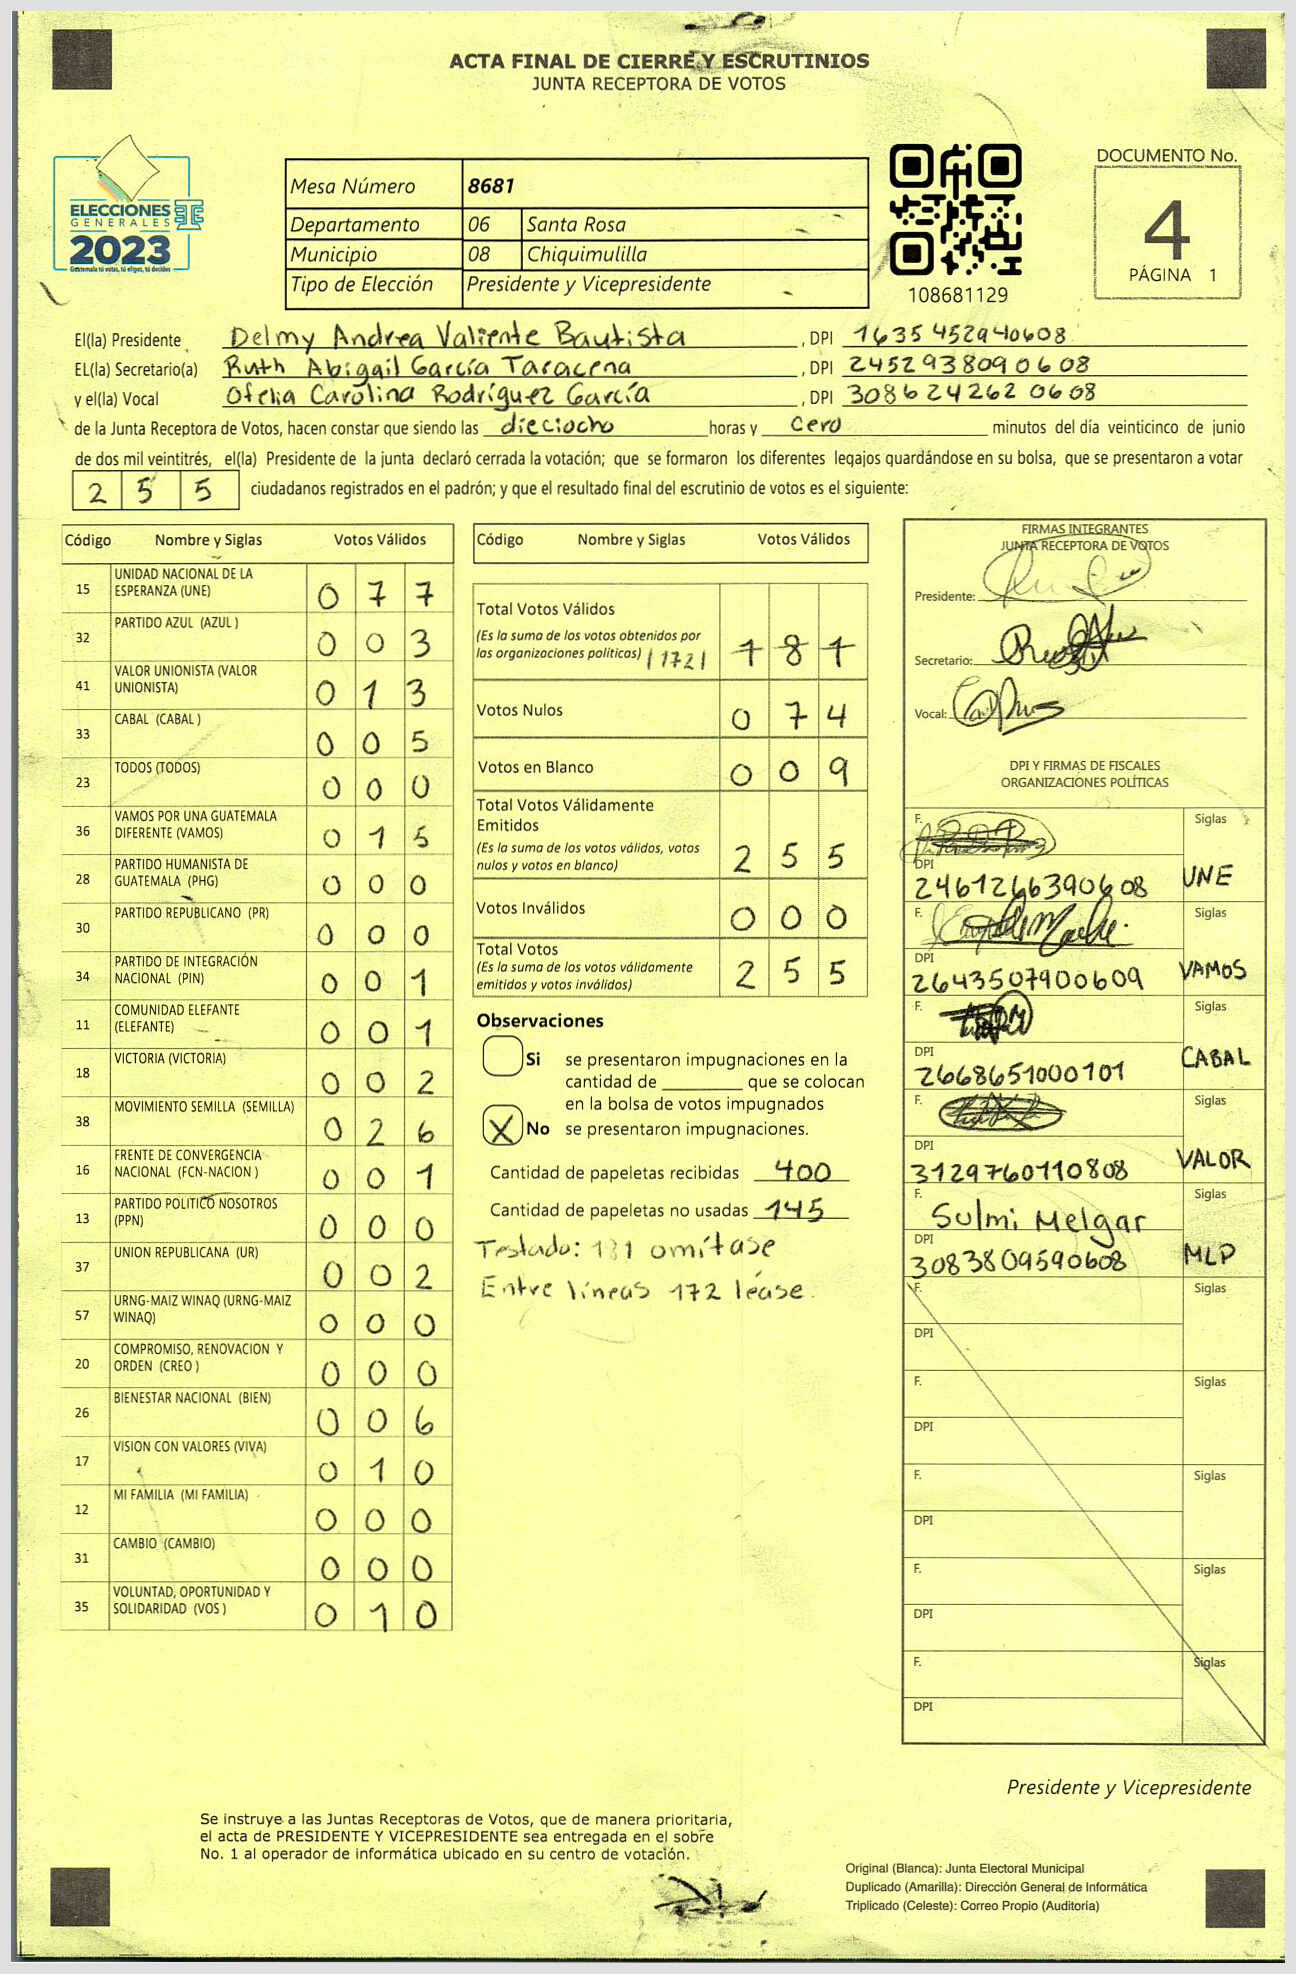 ACTA FINAL DE CIERRE Y ESCRUTINIOS
JUNTA RECEPTORA DE VOTOS
ELECCIONES
GENERALES
2023
Guatemala tú votas, tú eliges, tú decides
Mesa Número 8681
Departamento 06 Santa Rosa
Municipio 08 Chiquimulilla
Tipo de Elección Presidente y Vicepresidente
108681129
DOCUMENTO No.
4
PÁGINA 1
El(la) Presidente Delmy Andrea Valiente Bautista, DPI 1635 452940608
EL(la) Secretario(a) Ruth Abigail García Taracena, DPI 2452938090608
y el(la) Vocal Ofelia Carolina Rodríguez García, DPI 308624262 0608
de la Junta Receptora de Votos, hacen constar que siendo las dieciocho horas y cero minutos del día veinticinco de junio
de dos mil veintitrés, el(la) Presidente de la junta declaró cerrada la votación; que se formaron los diferentes legajos guardándose en su bolsa, que se presentaron a votar
2 5 5 ciudadanos registrados en el padrón; y que el resultado final del escrutinio de votos es el siguiente:
Código Nombre y Siglas Votos Válidos
15 UNIDAD NACIONAL DE LA ESPERANZA (UNE) 0 7 7
32 PARTIDO AZUL (AZUL ) 0 0 3
41 VALOR UNIONISTA (VALOR UNIONISTA) 0 1 3
33 CABAL (CABAL ) 0 0 5
23 TODOS (TODOS) 0 0 0
36 VAMOS POR UNA GUATEMALA DIFERENTE (VAMOS) 0 1 5
28 PARTIDO HUMANISTA DE GUATEMALA (PHG) 0 0 0
30 PARTIDO REPUBLICANO (PR) 0 0 0
34 PARTIDO DE INTEGRACIÓN NACIONAL (PIN) 0 0 1
11 COMUNIDAD ELEFANTE (ELEFANTE) 0 0 1
18 VICTORIA (VICTORIA) 0 0 2
38 MOVIMIENTO SEMILLA (SEMILLA) 0 2 6
16 FRENTE DE CONVERGENCIA NACIONAL (FCN-NACION ) 0 0 1
13 PARTIDO POLITICO NOSOTROS (PPN) 0 0 0
37 UNION REPUBLICANA (UR) 0 0 2
57 URNG-MAIZ WINAQ (URNG-MAIZ WINAQ) 0 0 0
20 COMPROMISO, RENOVACION Y ORDEN (CREO ) 0 0 0
26 BIENESTAR NACIONAL (BIEN) 0 0 6
17 VISION CON VALORES (VIVA) 0 1 0
12 MI FAMILIA (MI FAMILIA) 0 0 0
31 CAMBIO (CAMBIO) 0 0 0
35 VOLUNTAD, OPORTUNIDAD Y SOLIDARIDAD (VOS ) 0 1 0
Código Nombre y Siglas Votos Válidos
Total Votos Válidos
(Es la suma de los votos obtenidos por
las organizaciones políticas) |172| 1 8 1
Votos Nulos 0 7 4
Votos en Blanco 0 0 9
Total Votos Válidamente
Emitidos
(Es la suma de los votos válidos, votos
nulos y votos en blanco) 2 5 5
Votos Inválidos 0 0 0
Total Votos
(Es la suma de los votos válidamente
emitidos y votos inválidos) 2 5 5
Observaciones
Si se presentaron impugnaciones en la
cantidad de ________ que se colocan
en la bolsa de votos impugnados
X No se presentaron impugnaciones.
Cantidad de papeletas recibidas 400
Cantidad de papeletas no usadas 145
Testado: 181 omítase
Entre líneas 172 léase.
FIRMAS INTEGRANTES
JUNTA RECEPTORA DE VOTOS
Presidente:
Secretario:
Vocal:
DPI Y FIRMAS DE FISCALES
ORGANIZACIONES POLÍTICAS
F. Siglas
DPI
2461266390608 UNE
F. Siglas
DPI
2643507900609 VAMOS
F. Siglas
DPI
2668651000101 CABAL
F. Siglas
DPI
3129760110808 VALOR
F. Sulmi Melgar Siglas
DPI
3083809590608 MLP
F. Siglas
DPI
F. Siglas
DPI
F. Siglas
DPI
F. Siglas
DPI
F. Siglas
DPI
Presidente y Vicepresidente
Se instruye a las Juntas Receptoras de Votos, que de manera prioritaria,
el acta de PRESIDENTE Y VICEPRESIDENTE sea entregada en el sobre
No. 1 al operador de informática ubicado en su centro de votación.
Original (Blanca): Junta Electoral Municipal
Duplicado (Amarilla): Dirección General de Informática
Triplicado (Celeste): Correo Propio (Auditoria)